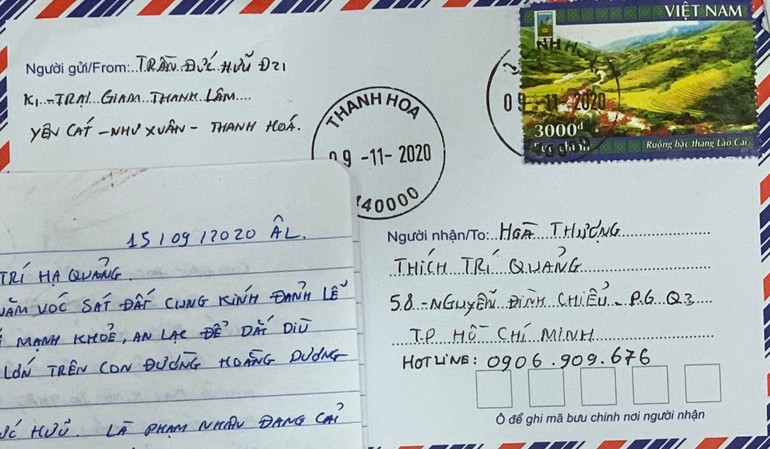 VIỆT NAM
3000đ
Ruộng bậc thang Lào Cai
09-11-2020
40000
Người gửi/From: TRẦN ĐỨC HỮU Đ21
K1-TRẠI GIAM THANH LÂM
YÊN CÁT - NHƯ XUÂN - THANH HOÁ.
THANH HOA
09-11-2020
440000
Người nhận/To: HOÀ THƯỢNG
THÍCH TRÍ QUẢNG
58-NGUYỄN ĐÌNH CHIỂU - P.6 Q3
T.P HỒ CHÍ MINH
HOTLINE: 0906.909.676
Ô để ghi mã bưu chính nơi người nhận
15/09/2020 ÂL.
TRÍ HẠ QUẢNG
NĂM VÓC SÁT ĐẤT CUNG KÍNH ĐẢNH LỄ
MẠNH KHOẺ, AN LẠC ĐỂ DẮT DÌU
LỚN TRÊN CON ĐƯỜNG HOẰNG DƯƠNG
HỮU. LÀ PHẠM NHÂN ĐANG CẢI